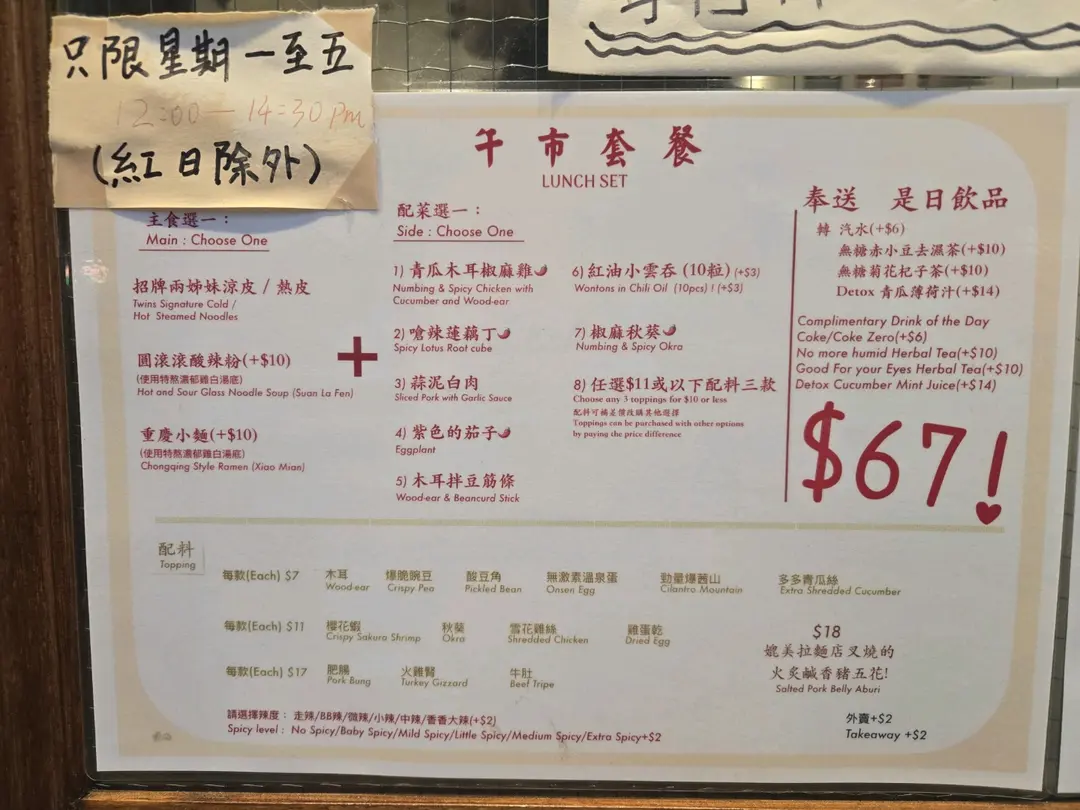 只限星期一至五
12:00—14:30 Pm
(紅日除外)
午市套餐
LUNCH SET
主食選一：
Main : Choose One
招牌兩姊妹涼皮 / 熱皮
Twins Signature Cold /
Hot Steamed Noodles
圓滾滾酸辣粉(+$10)
(使用特熬濃郁雞白湯底)
Hot and Sour Glass Noodle Soup (Suan La Fen)
重慶小麵(+$10)
(使用特熬濃郁雞白湯底)
Chongqing Style Ramen (Xiao Mian)
+
配菜選一：
Side : Choose One
1) 青瓜木耳椒麻雞
Numbing & Spicy Chicken with
Cucumber and Wood-ear
2) 嗆辣蓮藕丁
Spicy Lotus Root cube
3) 蒜泥白肉
Sliced Pork with Garlic Sauce
4) 紫色的茄子
Eggplant
5) 木耳拌豆筋條
Wood-ear & Beancurd Stick
6) 紅油小雲吞 (10粒) (+$3)
Wontons in Chili Oil (10pcs) ! (+$3)
7) 椒麻秋葵
Numbing & Spicy Okra
8) 任選$11或以下配料三款
Choose any 3 toppings for $10 or less
配料可補差價改購其他選擇
Toppings can be purchased with other options
by paying the price difference
奉送 是日飲品
轉 汽水(+$6)
無糖赤小豆去濕茶(+$10)
無糖菊花杞子茶(+$10)
Detox 青瓜薄荷汁(+$14)
Complimentary Drink of the Day
Coke/Coke Zero(+$6)
No more humid Herbal Tea(+$10)
Good For your Eyes Herbal Tea(+$10)
Detox Cucumber Mint Juice(+$14)
$67!
配料
Topping
每款(Each) $7 木耳 爆脆豌豆 酸豆角 無激素溫泉蛋 勁量爆茜山 多多青瓜絲
Wood-ear Crispy Pea Pickled Bean Onsen Egg Cilantro Mountain Extra Shredded Cucumber
每款(Each) $11 櫻花蝦 秋葵 雪花雞絲 雞蛋乾
Crispy Sakura Shrimp Okra Shredded Chicken Dried Egg
每款(Each) $17 肥腸 火雞腎 牛肚
Pork Bung Turkey Gizzard Beef Tripe
$18
媲美拉麵店叉燒的
火炙鹹香豬五花!
Salted Pork Belly Aburi
請選擇辣度： 走辣/BB辣/微辣/小辣/中辣/香香大辣(+$2)
Spicy level : No Spicy/Baby Spicy/Mild Spicy/Little Spicy/Medium Spicy/Extra Spicy+$2
外賣+$2
Takeaway +$2